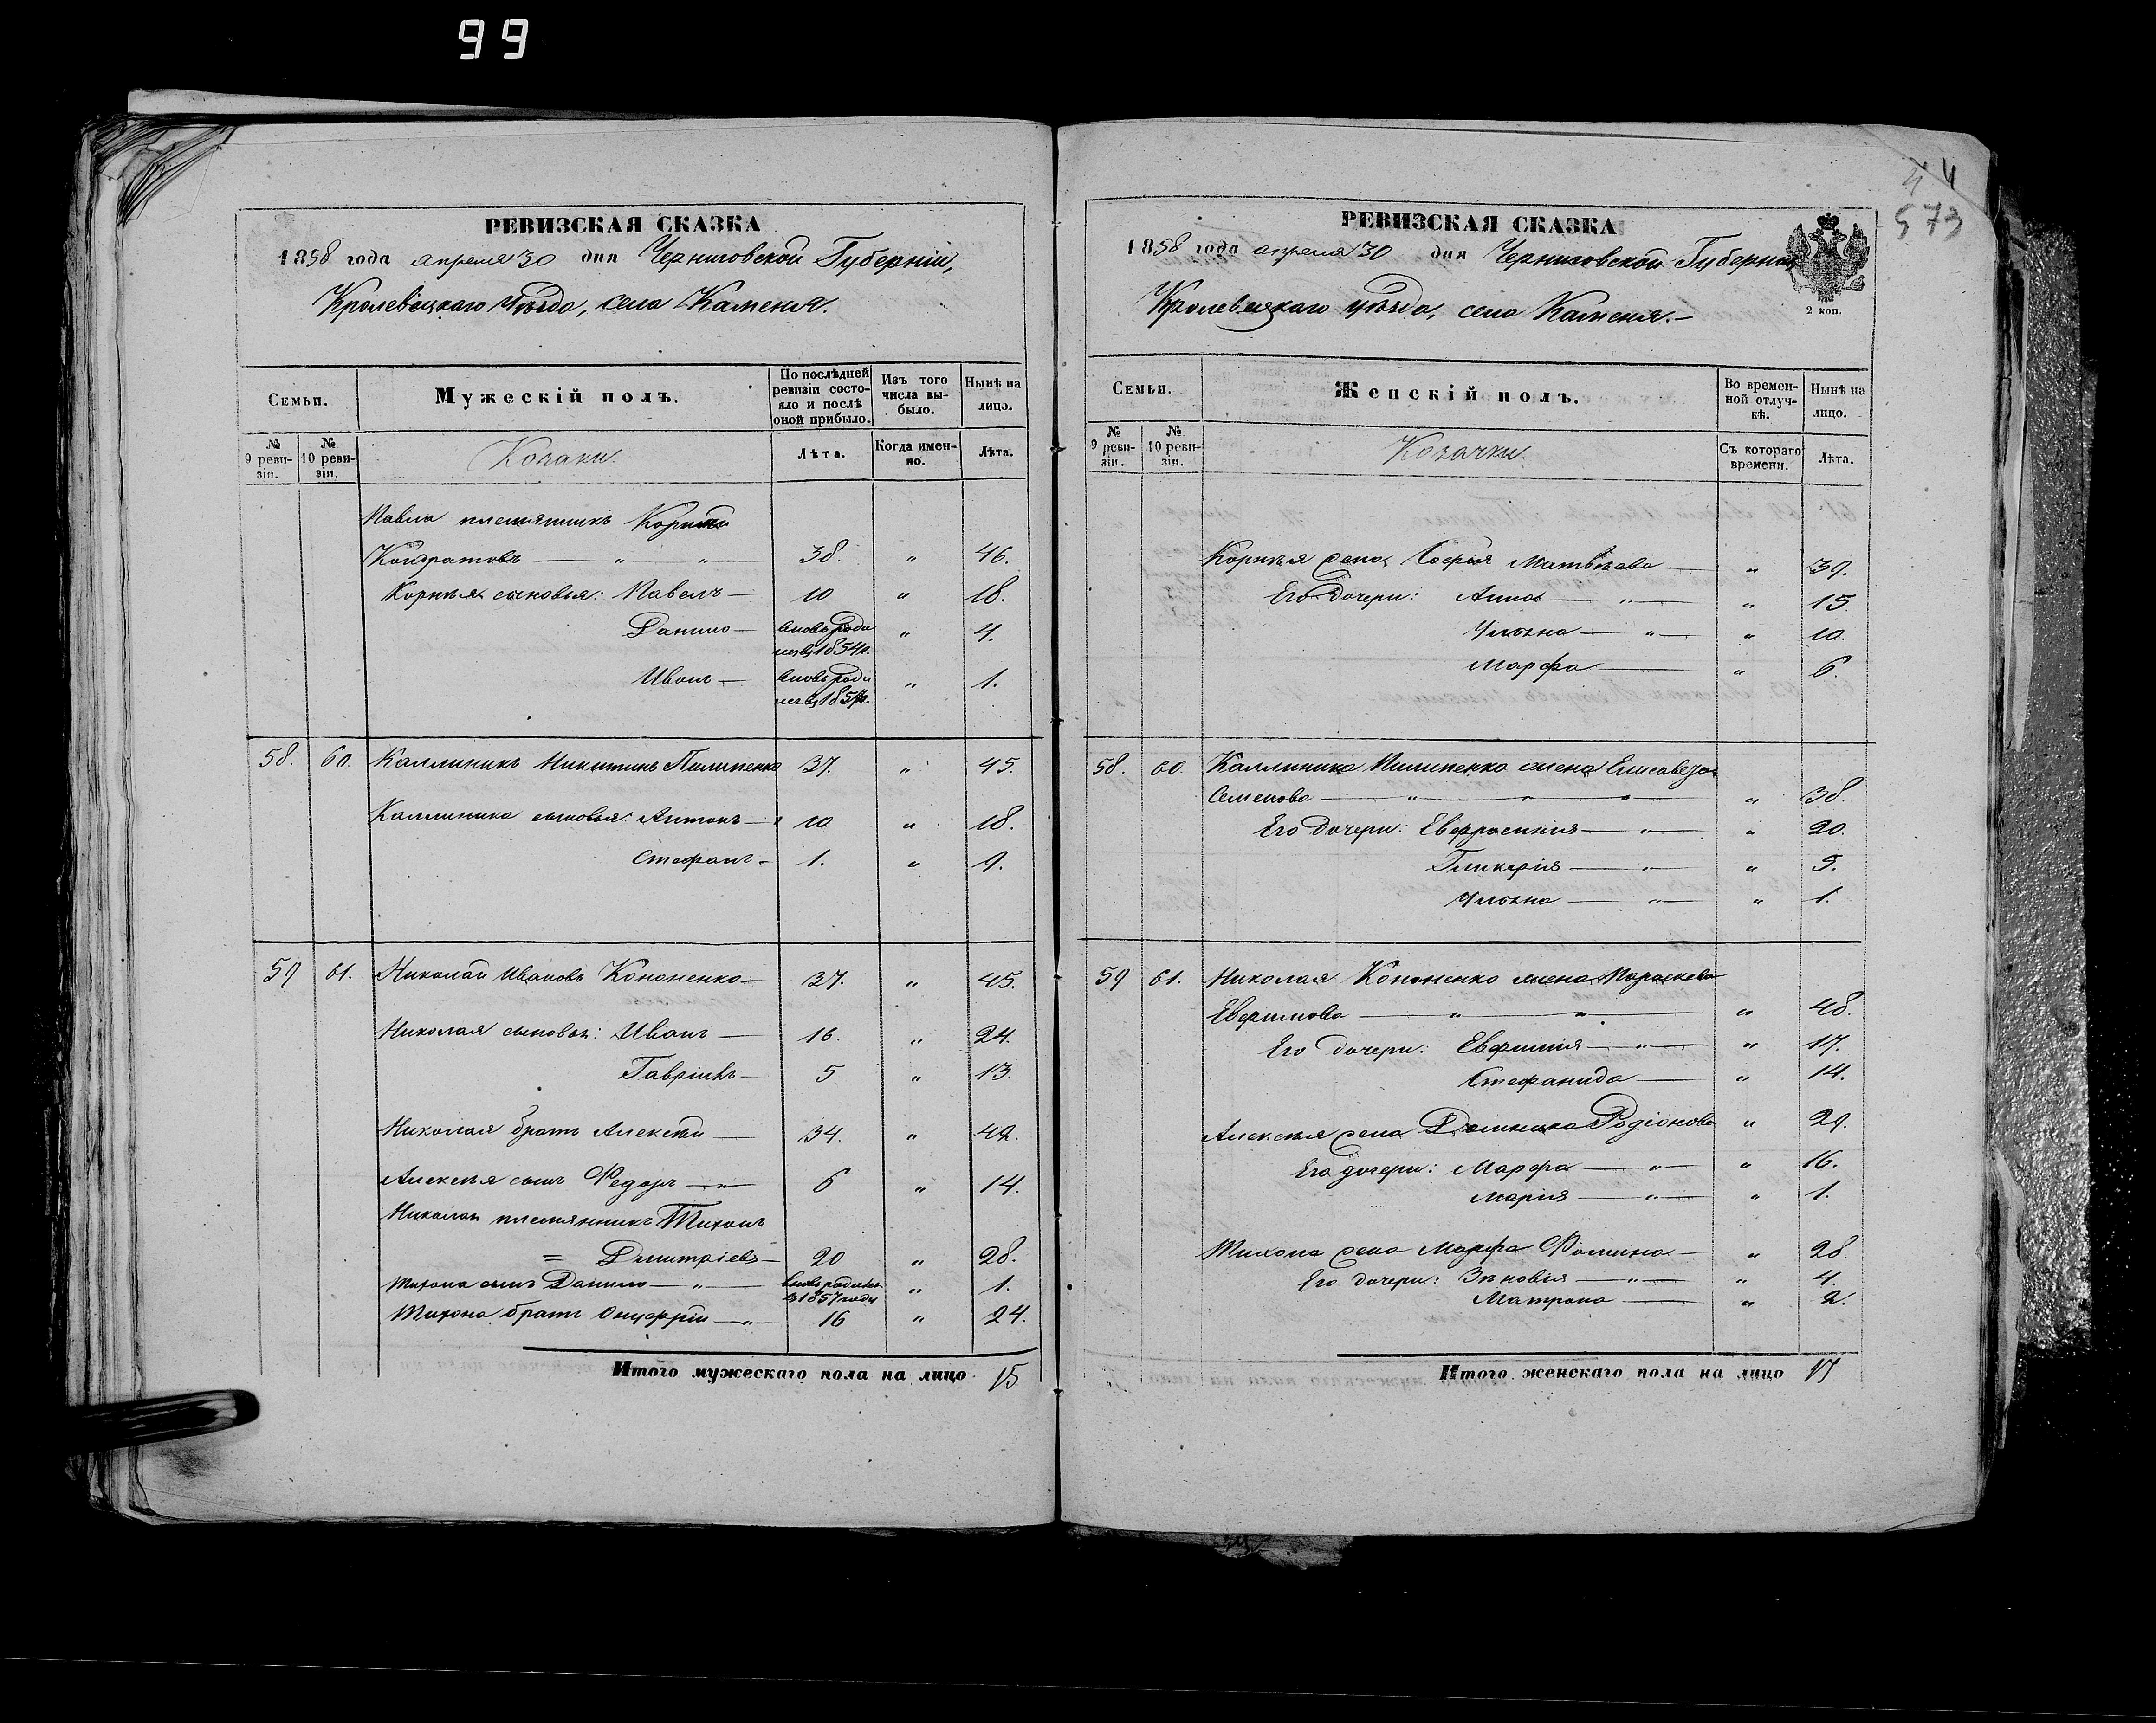 99
РЕВИЗСКАЯ СКАЗКА
1858 года апреля 30 дня Черниговской Губерніи,
Кролевецкаго Уѣзда, села Каменя.
Семьи.
Мужескій полъ.
По послѣдней ревизіи состояло и послѣ оной прибыло.
Изъ того числа выбыло.
Нынѣ на лицо.
№ 9 ревизіи.
№ 10 ревизіи.
Козаки.
Лѣта.
Когда именно.
Лѣта.
Павла племянникъ Корнѣй
Кондратовъ — „ — „ — 38. „ 46.
Корнѣя сыновья: Павелъ — 10 „ 18.
Данило — вновь родился въ 1854 г. „ 4.
Иванъ — вновь родился въ 1857 г. „ 1.
58. 60. Каллиникъ Никитинъ Пилипенко 37. „ 45.
Каллиника сыновья: Антонъ — 10 „ 18.
Стефанъ — 1. „ 9.
59 61. Николай Ивановъ Кононенко — 37. „ 45.
Николая сыновья: Иванъ — 16. „ 24.
Гавріилъ — 5 „ 13.
Николая братъ Алексѣй — 34. „ 42.
Алексѣя сынъ Федоръ — „ — 6 „ 14.
Николая племянникъ Тихонъ
= Дмитріевъ — 20 „ 28.
Тихона сынъ Данило — „ — вновь родился въ 1857 году „ 1.
Тихона братъ Онуфрій — „ — 16 „ 24.
Итого мужескаго пола на лицо 15
4 4
573
РЕВИЗСКАЯ СКАЗКА
1858 года апреля 30 дня Черниговской Губерніи
Кролевецкаго уѣзда, села Каменя. —
2 коп.
Семьи.
Женскій полъ.
Во временной отлучкѣ.
Нынѣ на лицо.
№ 9 ревизіи.
№ 10 ревизіи.
Козачки.
Съ котораго времени.
Лѣта.
Корнѣя жена Софія Матвѣева — „ 39.
Его дочери: Анна — „ — „ 15.
Ульяна — „ — „ 10.
Марфа — „ 6.
58. 60. Каллиника Пилипенко жена Елисавета
Семенова — „ — „ — „ — „ 38.
Его дочери: Евфросинія — „ — „ 20.
Гликерія — „ — „ 5.
Ульяна — „ — „ 1.
59 61. Николая Кононенко жена Параскева
Евфимова — „ — „ — „ 48.
Его дочери: Евфимія — „ — „ 17.
Стефанида — „ 14.
Алексѣя жена Домникія Родіонова „ 29.
Его дочери: Марфа — „ — „ 16.
Марія — „ — „ 1.
Тихона жена Марфа Фомина — „ 28.
Его дочери: Зѣновія — „ — „ 4.
Матрона — „ 2.
Итого женскаго пола на лицо 17